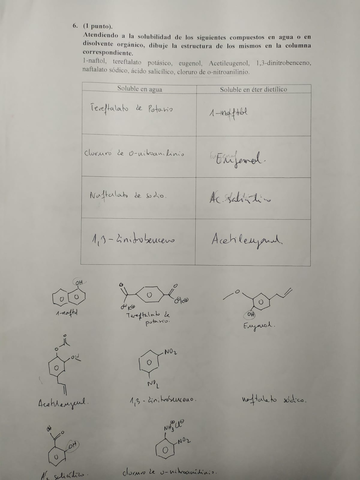 6. (1 punto).
Atendiendo a la solubilidad de los siguientes compuestos en agua o en
disolvente orgánico, dibuje la estructura de los mismos en la columna
correspondiente.
1-naftol, tereftalato potásico, eugenol, Acetileugenol, 1,3-dinitrobenceno,
naftalato sódico, ácido salicílico, cloruro de o-nitroanilinio.
Soluble en agua Soluble en éter dietílico
Tereftalato de Potasio 1-naftol
Cloruro de o-nitroanilinio Eugenol.
Naftalato de sodio. Ac. salicílico
1,3-Dinitrobenceno Acetileugenol.
OH
1-naftol
Tereftalato de
potasio
OH
Eugenol.
NO₂
NO₂
Acetileugenol
1,3-Dinitrobenceno.
naftalato sódico.
OH
NO₂
Ac salicílico
Cloruro de o-nitroanilinio.